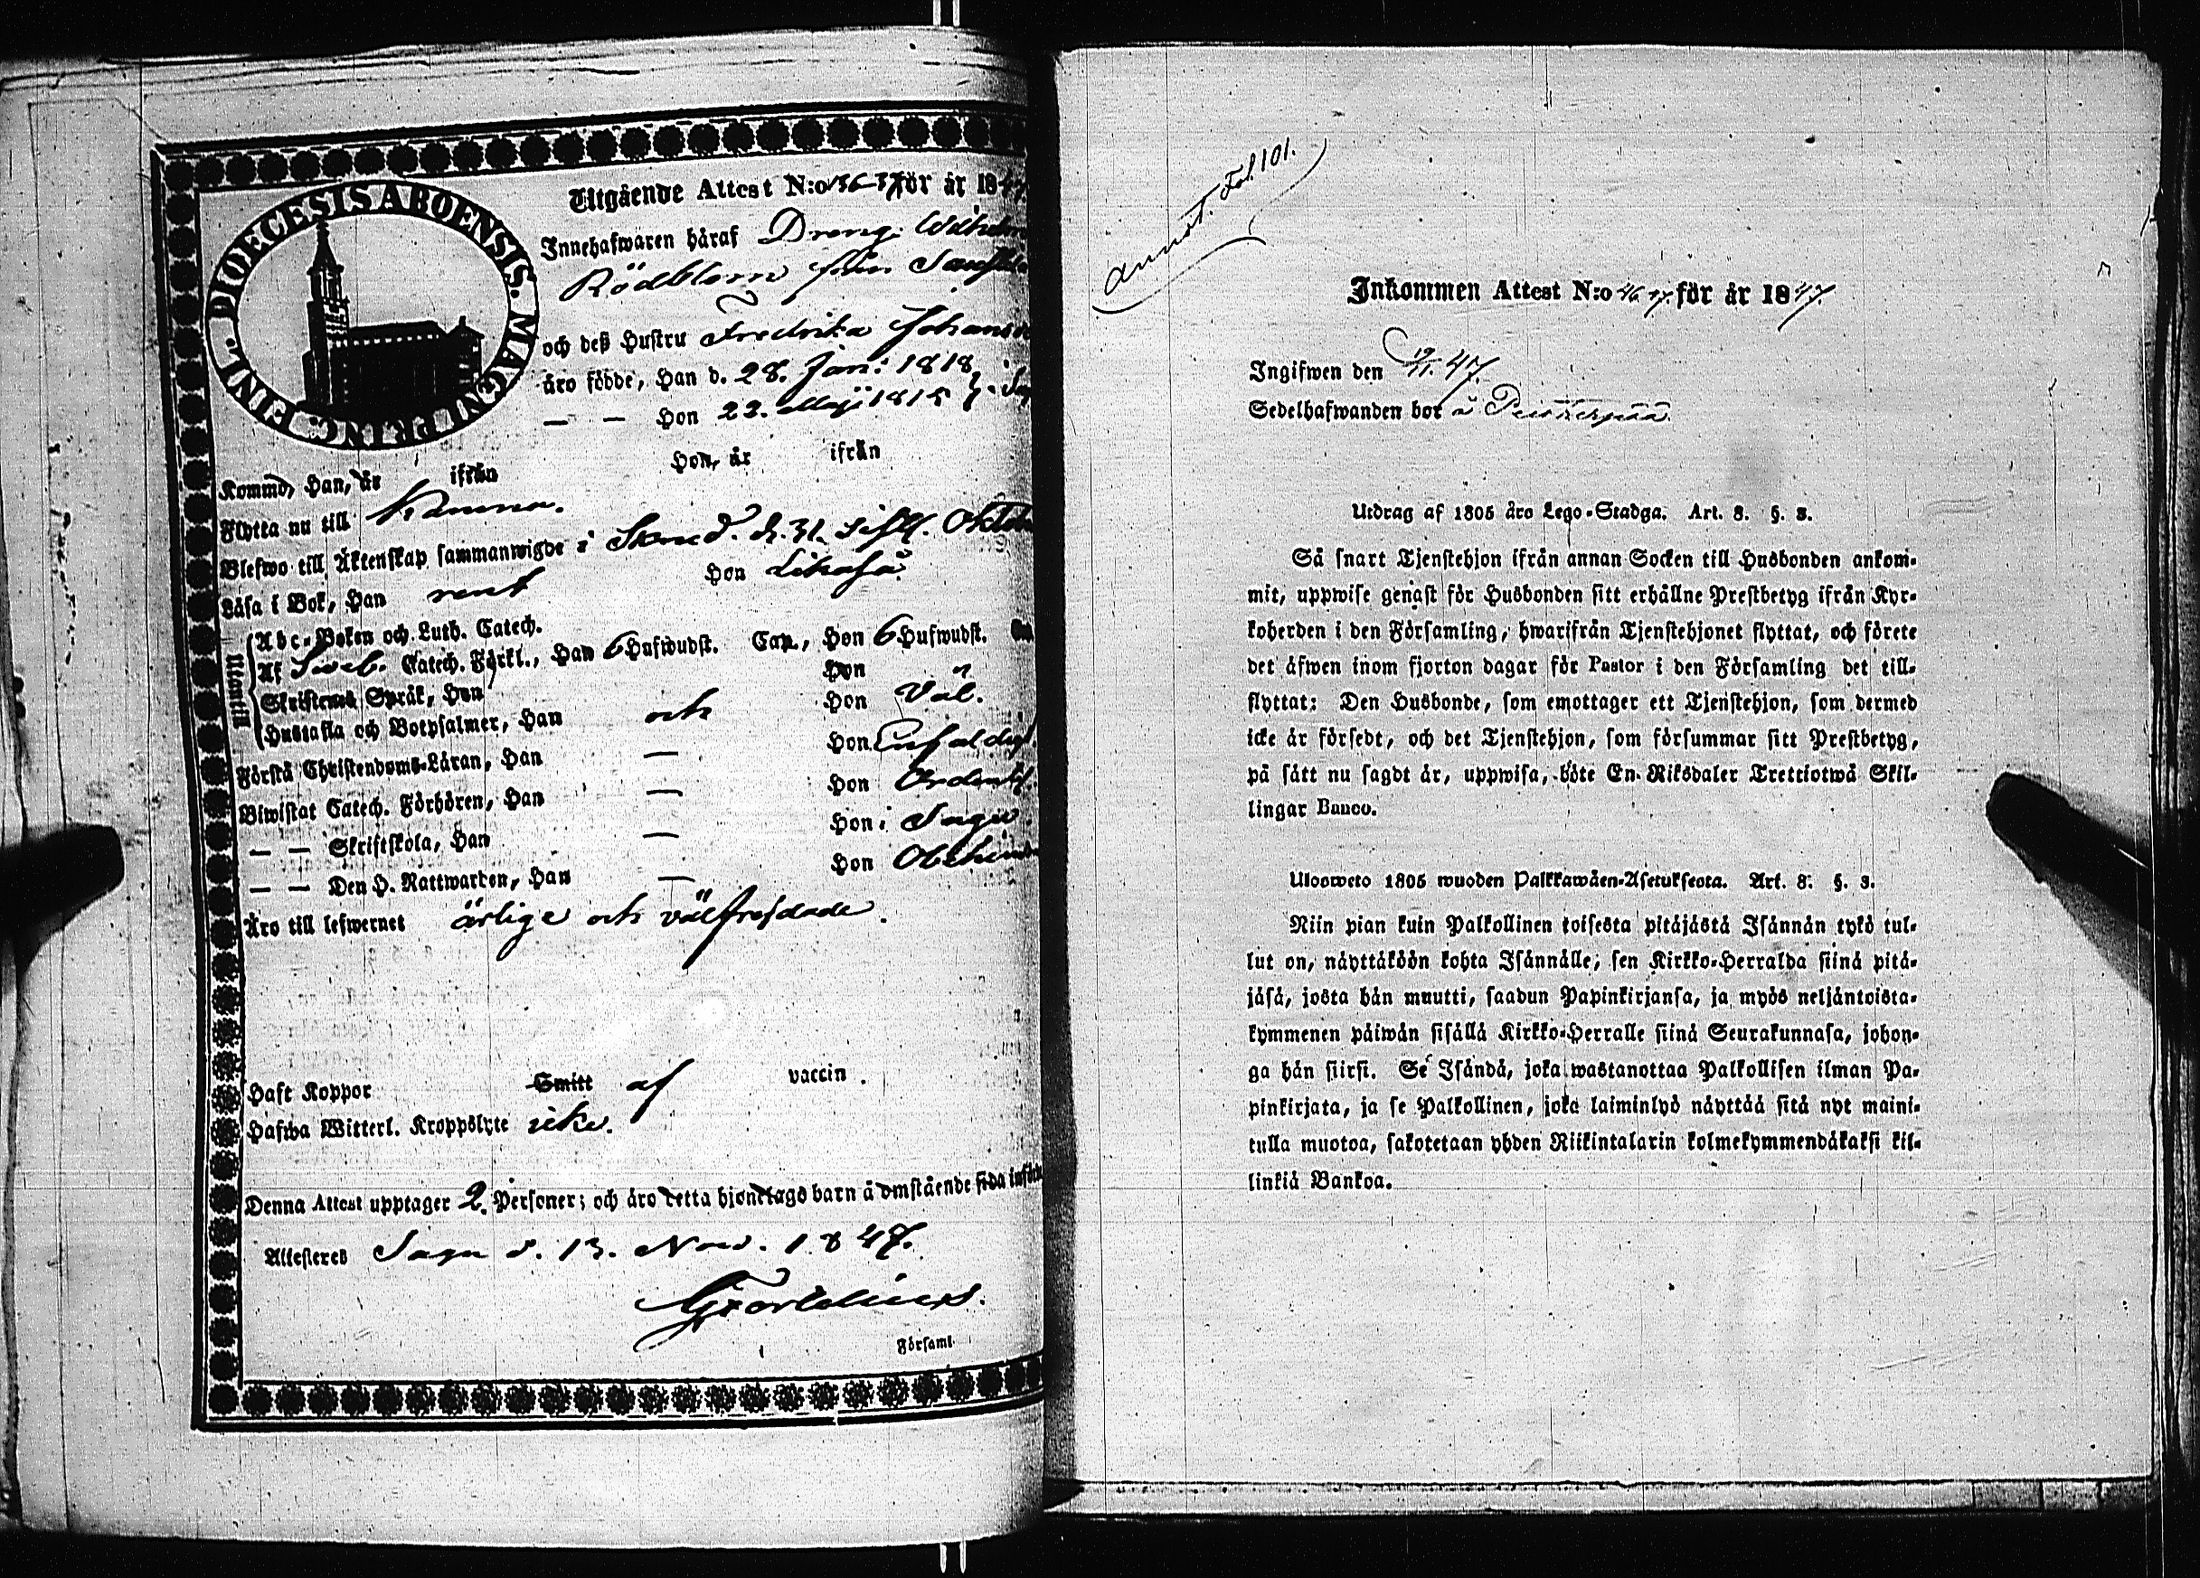 DIOECESIS ABOENSIS. MAGNI PRINC. FINL.
Utgående Attest N:o 36-37 för år 1847
Innehafwaren häraf Dreng: Wilhelm
Rödblom från
och deß Hustru Fredrika Johans
äro födde, Han d. 28. Jan: 1818
— — Hon 22. Maji 1818
Kommo, Han, år ifrån Hon, år ifrån
Flytta nu till Kimmo.
Blefwo till Äktenskap sammanwigde i d. 31. Oktob
Läsa i Bok, Han rent Hon Likaså
Utantill
Abc-Boken och Luth. Catech.
Af Sveb. Catech. Förkl., Han 6 Hufwudst. Cap., Hon 6 Hufwudst.
Skriftenes Språk, Han Hon
Hustafla och Botpsalmer, Han och Hon Väl.
Förstå Christendoms-Läran, Han — Hon Enfaldigt.
Biwistat Catech. Förhören, Han — Hon Ordentl.
— — Skriftskola, Han — Hon i Sagu.
— — Den H. Nattwarden, Han — Hon Obehindr
Äro till lefwernet ärlige och välfrejdade.
Haft Koppor Smitt af vaccin.
Hafwa Witterl. Kroppslyte icke.
Denna Attest upptager 2. Personer; och äro detta hjonelags barn å omstående sida införde
Attesteras Sagu d. 13. Nov. 1847.
Församl.
Annot. Fol. 101.
Inkommen Attest N:o 46 47. för år 1847.
Ingifwen den 19/11 47.
Sedelhafwanden bor å
Utdrag af 1805 års Lego-Stadga. Art. 8. §. 3.
Så snart Tjenstehjon ifrån annan Socken till Husbonden ankom-
mit, uppwise genast för Husbonden sitt erhållne Prestbetyg ifrån Kyr-
koherden i den Församling, hwarifrån Tjenstehjonet flyttat, och förete
det äfwen inom fjorton dagar för Pastor i den Församling det till-
flyttat: Den Husbonde, som emottager ett Tjenstehjon, som dermed
icke är försedt, och det Tjenstehjon, som försummar sitt Prestbetyg,
på sätt nu sagdt är, uppwisa, böte En Riksdaler Trettiotwå Skil-
lingar Banco.
Uloosweto 1805 wuoden Palkkawäen-Asetuksesta. Art. 8. §. 3.
Niin pian kuin Palkollinen toisesta pitäjästä Isännän tykö tul-
lut on, näyttäköön kohta Isännälle, sen Kirkko-Herralda siinä pitä-
jäsä, josta hän muutti, saadun Papinkirjansa, ja myös neljäntoista-
kymmenen päiwän sisällä Kirkko-Herralle siinä Seurakunnasa, johon-
ga hän siirsi. Se Isändä, joka wastanottaa Palkollisen ilman Pa-
pinkirjata, ja se Palkollinen, joka laiminlyö näyttää sitä nyt maini-
tulla muotoa, sakotetaan yhden Riikintalarin kolmekymmendäkaksi kil-
linkiä Bankoa.